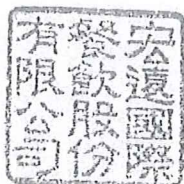 安遠國際
餐飲股份
有限公司